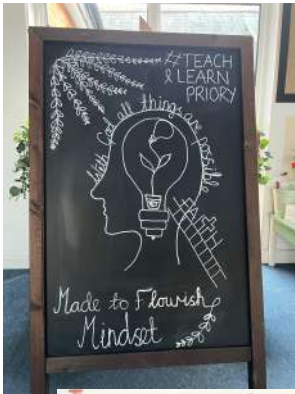 #TEACH
& LEARN
PRIORY
With God all things are possible
Made to Flourish
Mindset